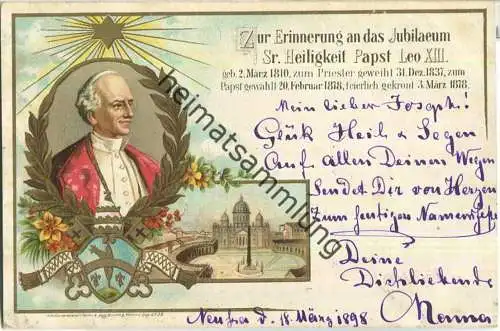 Zur Erinnerung an das Jubilaeum
Sr. Heiligkeit Papst Leo XIII.
geb. 2. März 1810, zum Priester geweiht 31. Dez. 1837, zum
Papst gewählt 20. Februar 1878, feierlich gekrönt 3. März 1878.
Mein lieber Joseph!
Glük Heil & Segen
Auf allen Deinen Wegen
Sendet Dir von Herzen
Zum heutigen Namensfeste
Deine
Dichliebende
den 18. März 1898
heimatsammlung.de